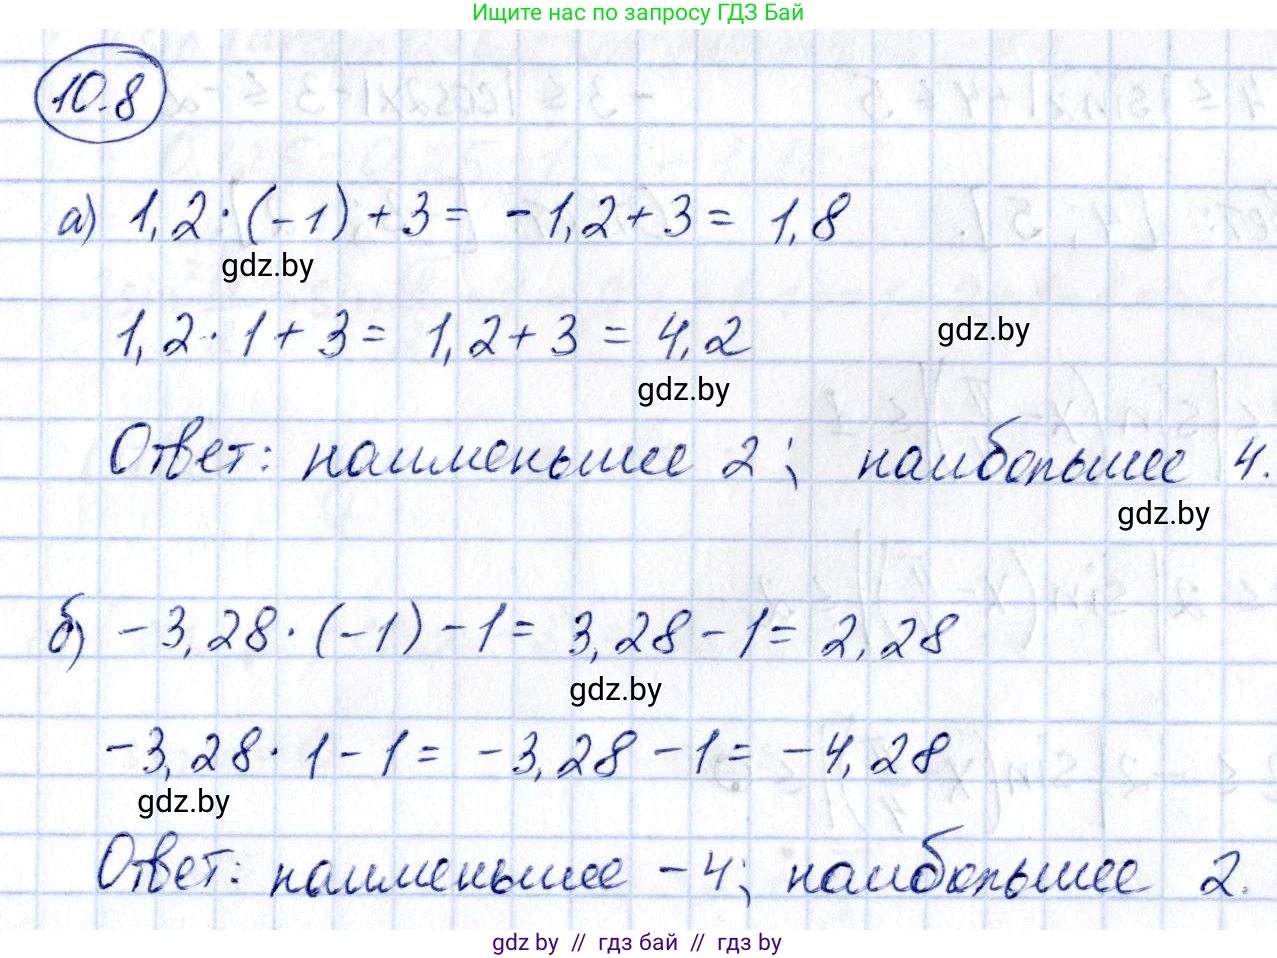 Ищите нас по запросу ГДЗ Бай
10.8
а) 1,2·(-1)+3= -1,2+3= 1,8
gdz.by
1,2·1+3= 1,2+3 = 4,2
gdz.by
gdz.by
Ответ: наименьшее 2; наибольшее 4.
gdz.by
б) -3,28·(-1)-1= 3,28-1= 2,28
gdz.by
-3,28·1-1= -3,28-1= -4,28
gdz.by
Ответ: наименьшее -4; наибольшее 2.
gdz by // гдз бай // гдз by